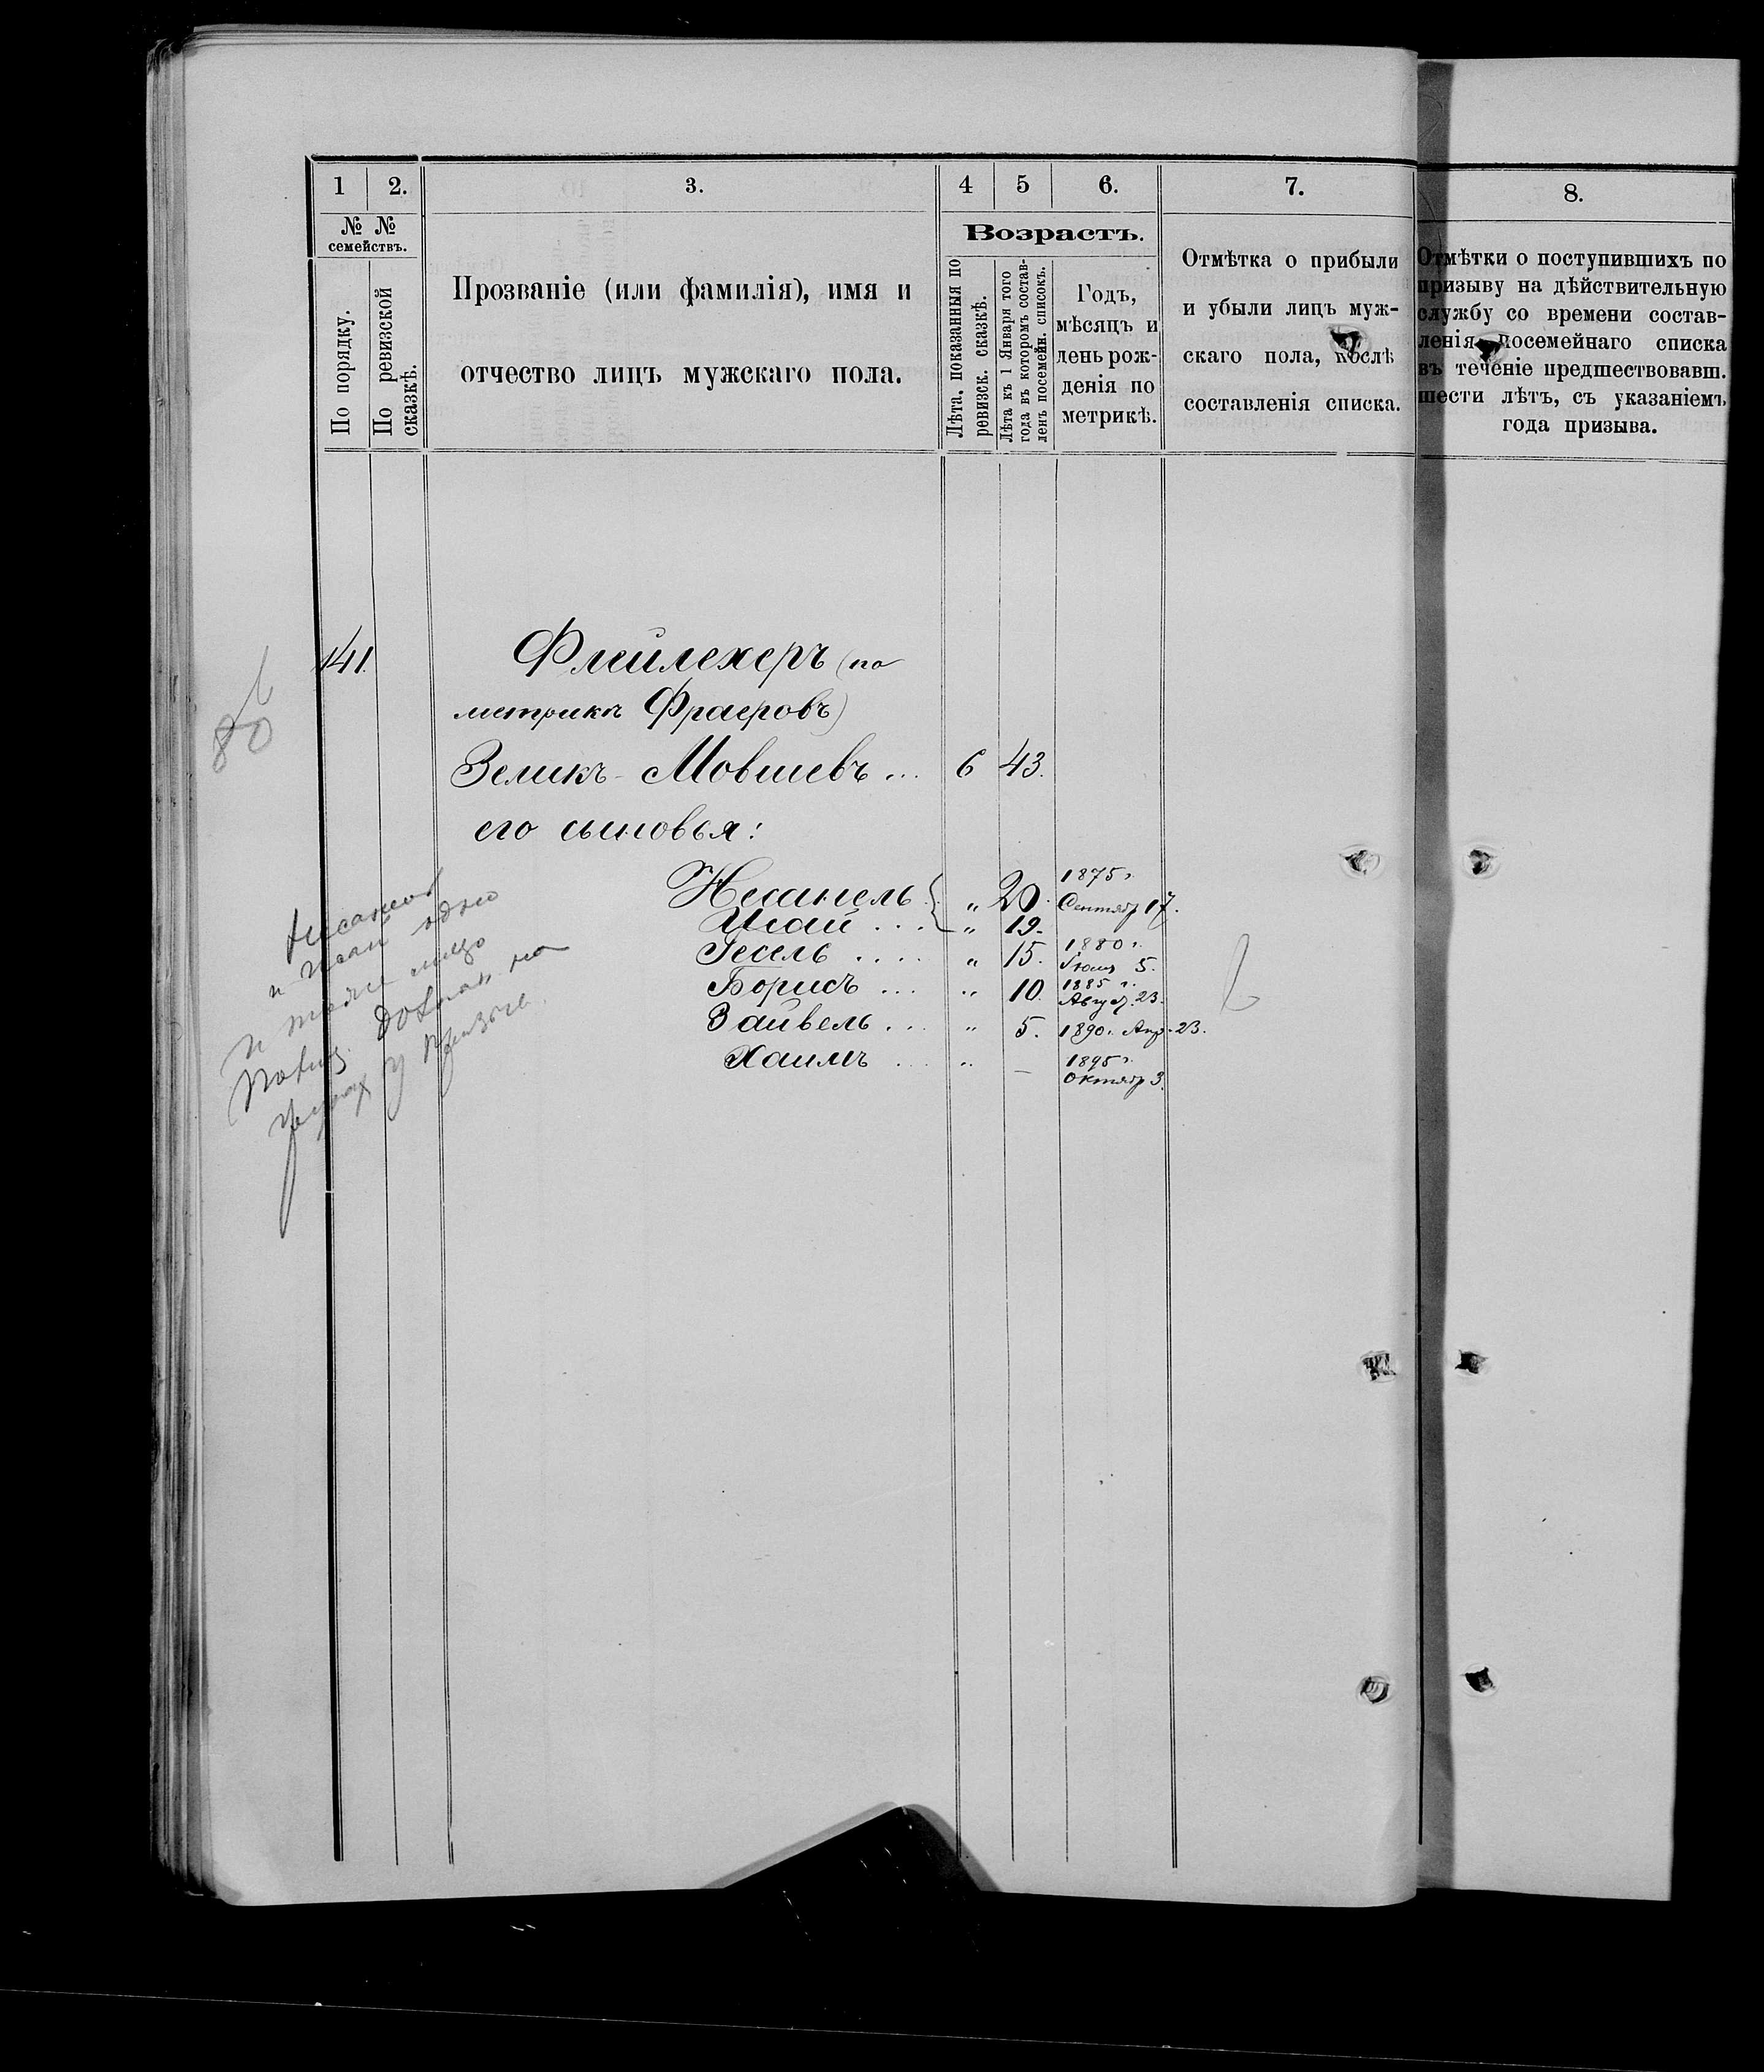 1
2.
3.
4
5
6.
7.
8.
№ №
семействъ.
По порядку.
По ревизской
сказкѣ.
Прозваніе (или фамилія), имя и
отчество лицъ мужскаго пола.
Возрастъ.
Лѣта, показанныя по
ревизск. сказкѣ.
Лѣта къ 1 Января того
года въ которомъ состав-
ленъ посемейн. списокъ.
Годъ,
мѣсяцъ и
день рож-
денія по
метрикѣ.
Отмѣтка о прибыли
и убыли лицъ муж-
скаго пола, послѣ
составленія списка.
Отмѣтки о поступившихъ по
призыву на дѣйствительную
службу со времени состав-
ленія посемейнаго списка
въ теченіе предшествовавш.
шести лѣтъ, съ указаніемъ
года призыва.
141.
Флейлехеръ (по
метрикѣ Фраеровъ)
80
Зеликъ Мовшевъ ... 6 43.
его сыновья:
Несанель " 20. 1875 г.
Сентяб 17.
Исай ... " 19.
Гесель .... " 15. 1880 г.
Іюня 5.
Борисъ ... " 10. 1885 г.
Август. 23.
Зайвель ... " 5. 1890 г. Апр. 23.
Хаимъ ... " — 1895 г.
Октябр 3.
и Исай одно
и тоже лицо